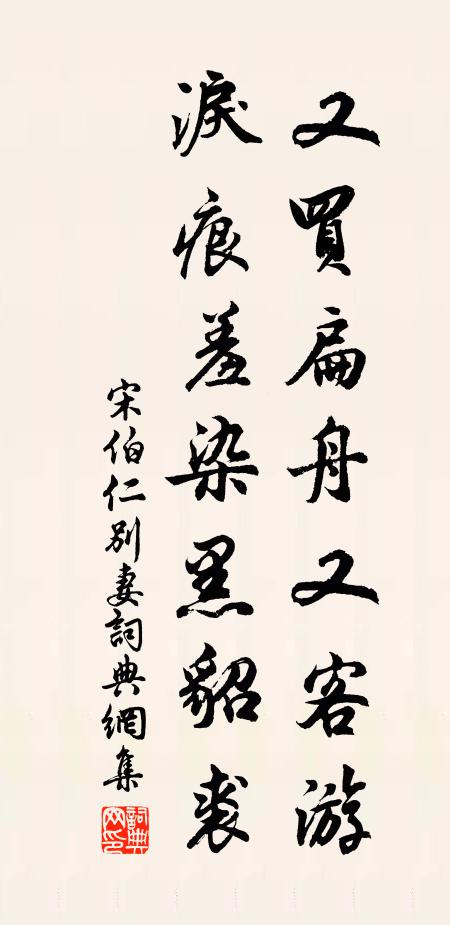 又買扁舟又客游
淚痕羞染黑貂裘
宋伯仁別妻詞典網集
詞典網印